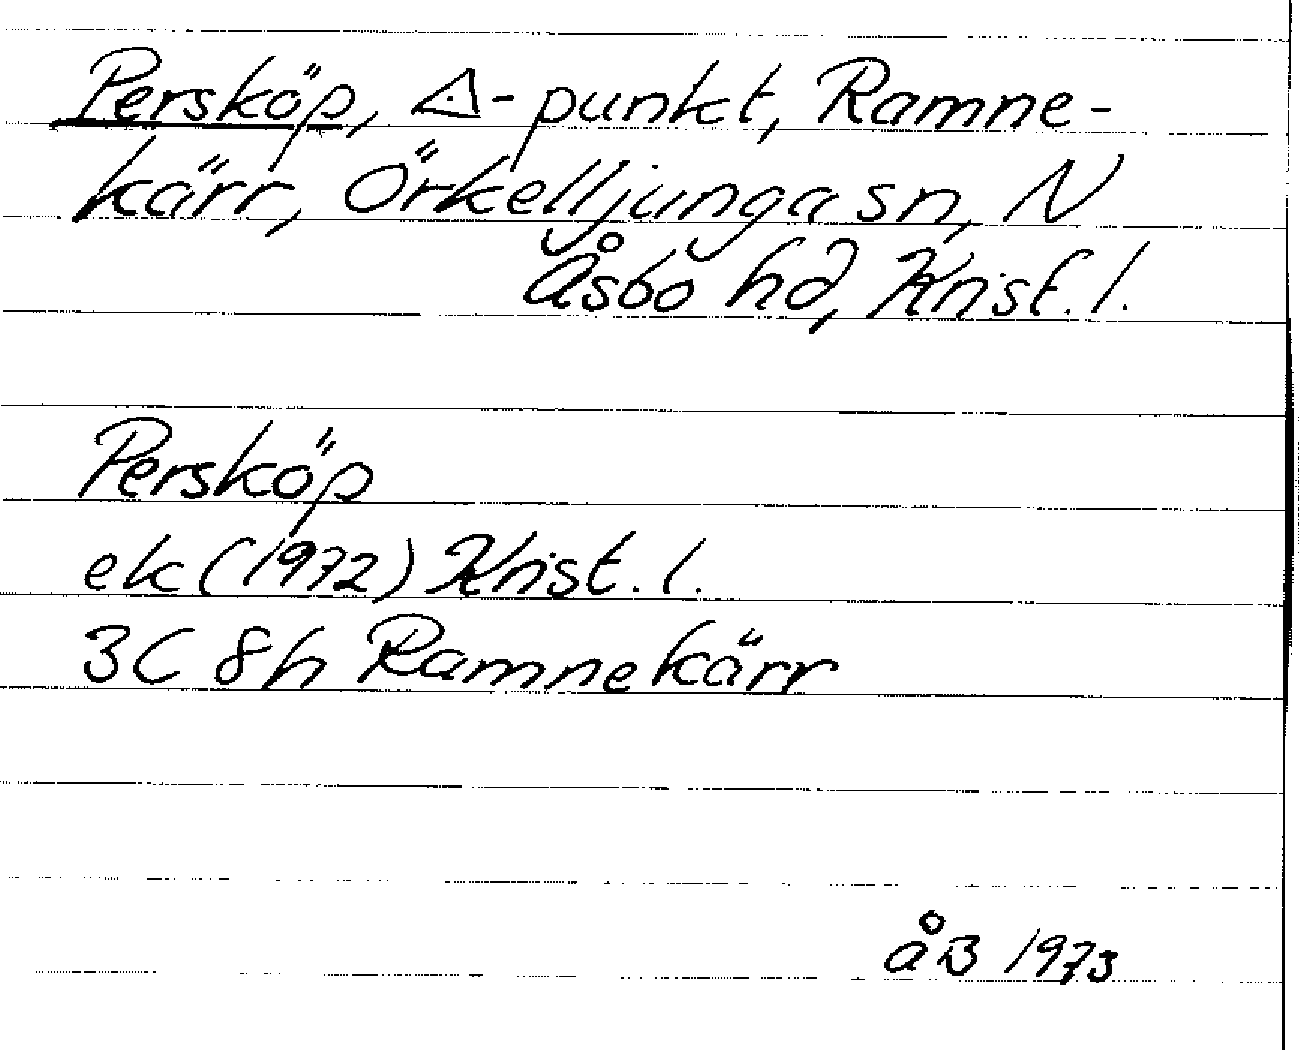 Persköp, ⟁-punkt, Ramne-
kärr, Örkelljunga sn, N
Åsbo hd, Krist. l.
Persköp
ek (1972) Krist. l.
3C 8h Ramnekärr
åB 1973